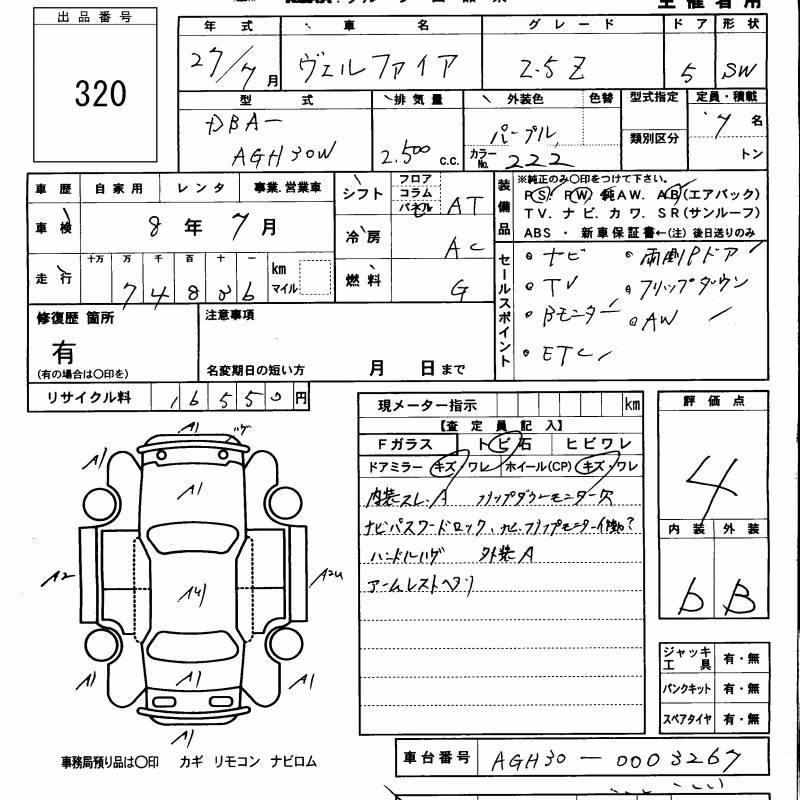 出品番号
320
年式 車名 グレード ドア 形状
27/7月 ヴェルファイア 2.5Z 5 SW
型式 排気量 外装色 色替 型式指定 定員・積載
DBA-
AGH30W 2.500 c.c. パープル カラーNo. 222 類別区分 7名
トン
車歴 自家用 レンタ 事業.営業車
車検 8年7月
走行 十万 万 千 百 十 一 km マイル
シフト フロア コラム パネル AT
冷房 AC
燃料 G
装備品
※純正のみ〇印をつけて下さい。
PS. PW. 純AW. AB(エアバック)
TV. ナビ. カワ. SR(サンルーフ)
ABS ・ 新車保証書←(注) 後日送りのみ
セールスポイント
・ナビ ・両側Pドア
・TV ・フリップダウン
・Bモニター ・AW
・ETC
修復歴 箇所
有
(有の場合は〇印を)
注意事項
名変期日の短い方 月 日まで
リサイクル料 16550円
現メーター指示 km
【査定員記入】
Fガラス トビ石 ヒビワレ
ドアミラー キズ ワレ ホイール(CP) キズ・ワレ
内装スレ.A フリップダウンモニター欠
ナビパスワードロック、ナビ.フリップモニター作動?
ハンドルハゲ 外装A
アームレストヘリ
評価点
4
内装 外装
b B
ジャッキ工具 有・無
パンクキット 有・無
スペアタイヤ 有・無
A1
A1
A1
A1
A2
A2
A1
A1
A1
A1
事務局預り品は〇印 カギ リモコン ナビロム
車台番号 AGH30-0003267